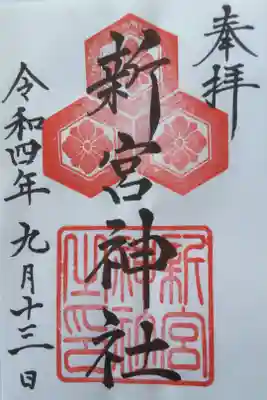 奉拝
新宮神社
新宮神社之印
令和四年 九月十三日